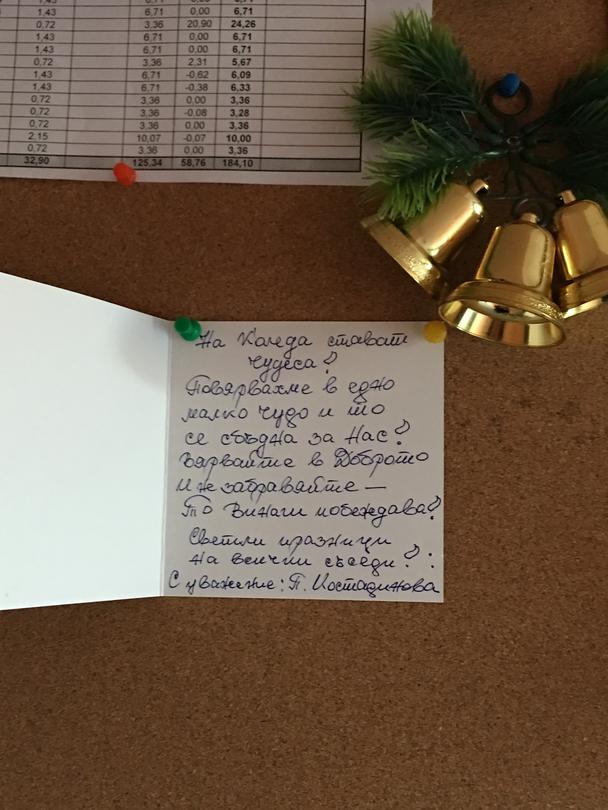 1,43 6,71 0,00 6,71
0,72 3,36 20,90 24,26
1,43 6,71 0,00 6,71
1,43 6,71 0,00 6,71
0,72 3,36 2,31 5,67
1,43 6,71 -0,62 6,09
1,43 6,71 -0,38 6,33
0,72 3,36 0,00 3,36
0,72 3,36 -0,08 3,28
0,72 3,36 0,00 3,36
2,15 10,07 -0,07 10,00
0,72 3,36 0,00 3,36
32,90 125,34 58,76 184,10
На Коледа стават
чудеса!
Повярвахме в едно
малко чудо и то
се сбъдна за Нас!
Вярвайте в Доброто
и не забравяйте —
то винаги побеждава!
Светли празници
на всички съседи! :
С уважение: П. Костадинова